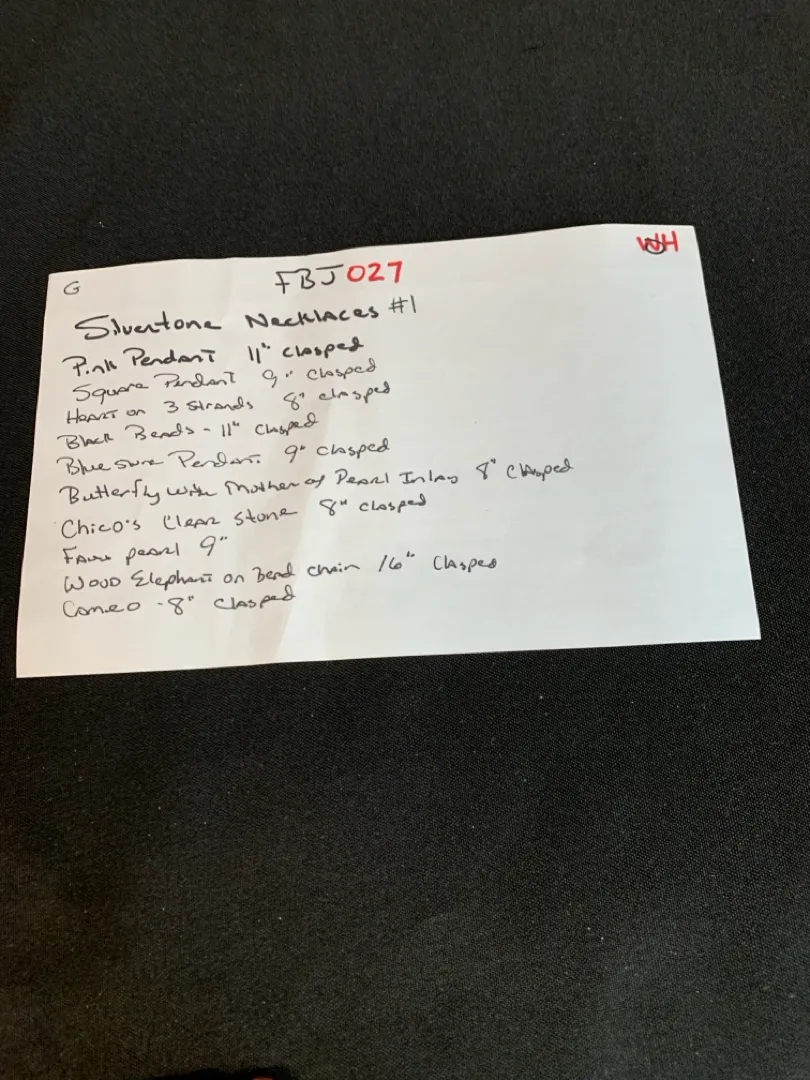 G FBJ027 WH
Silvertone Necklaces #1
Pink Pendant 11" clasped
Square Pendant 9" clasped
Heart on 3 strands 8" clasped
Black Beads - 11" clasped
Blue Pendant 9" clasped
Butterfly with Mother of Pearl Inlay 8" clasped
Chico's Clear Stone 8" clasped
Faux pearl 9"
Wood Elephant on Bead chain 16" clasped
Cameo - 8" clasped